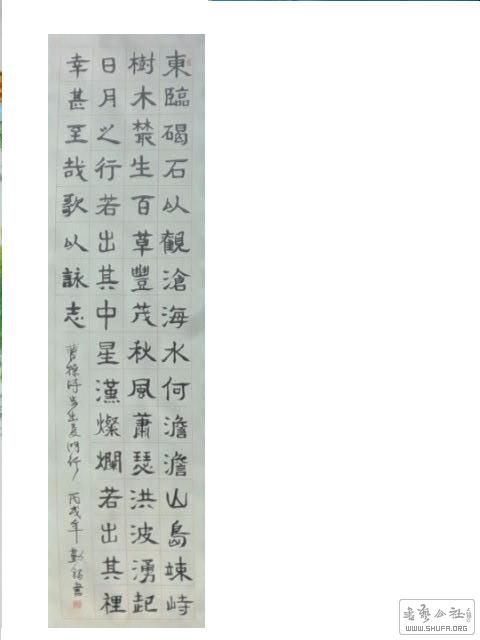 東臨碣石以觀滄海水何澹澹山島竦峙
樹木叢生百草豐茂秋風蕭瑟洪波湧起
日月之行若出其中星漢燦爛若出其裡
幸甚至哉歌以詠志
曹操詩步出夏門行 丙戌年 書
書藝公社
WWW.SHUFA.ORG